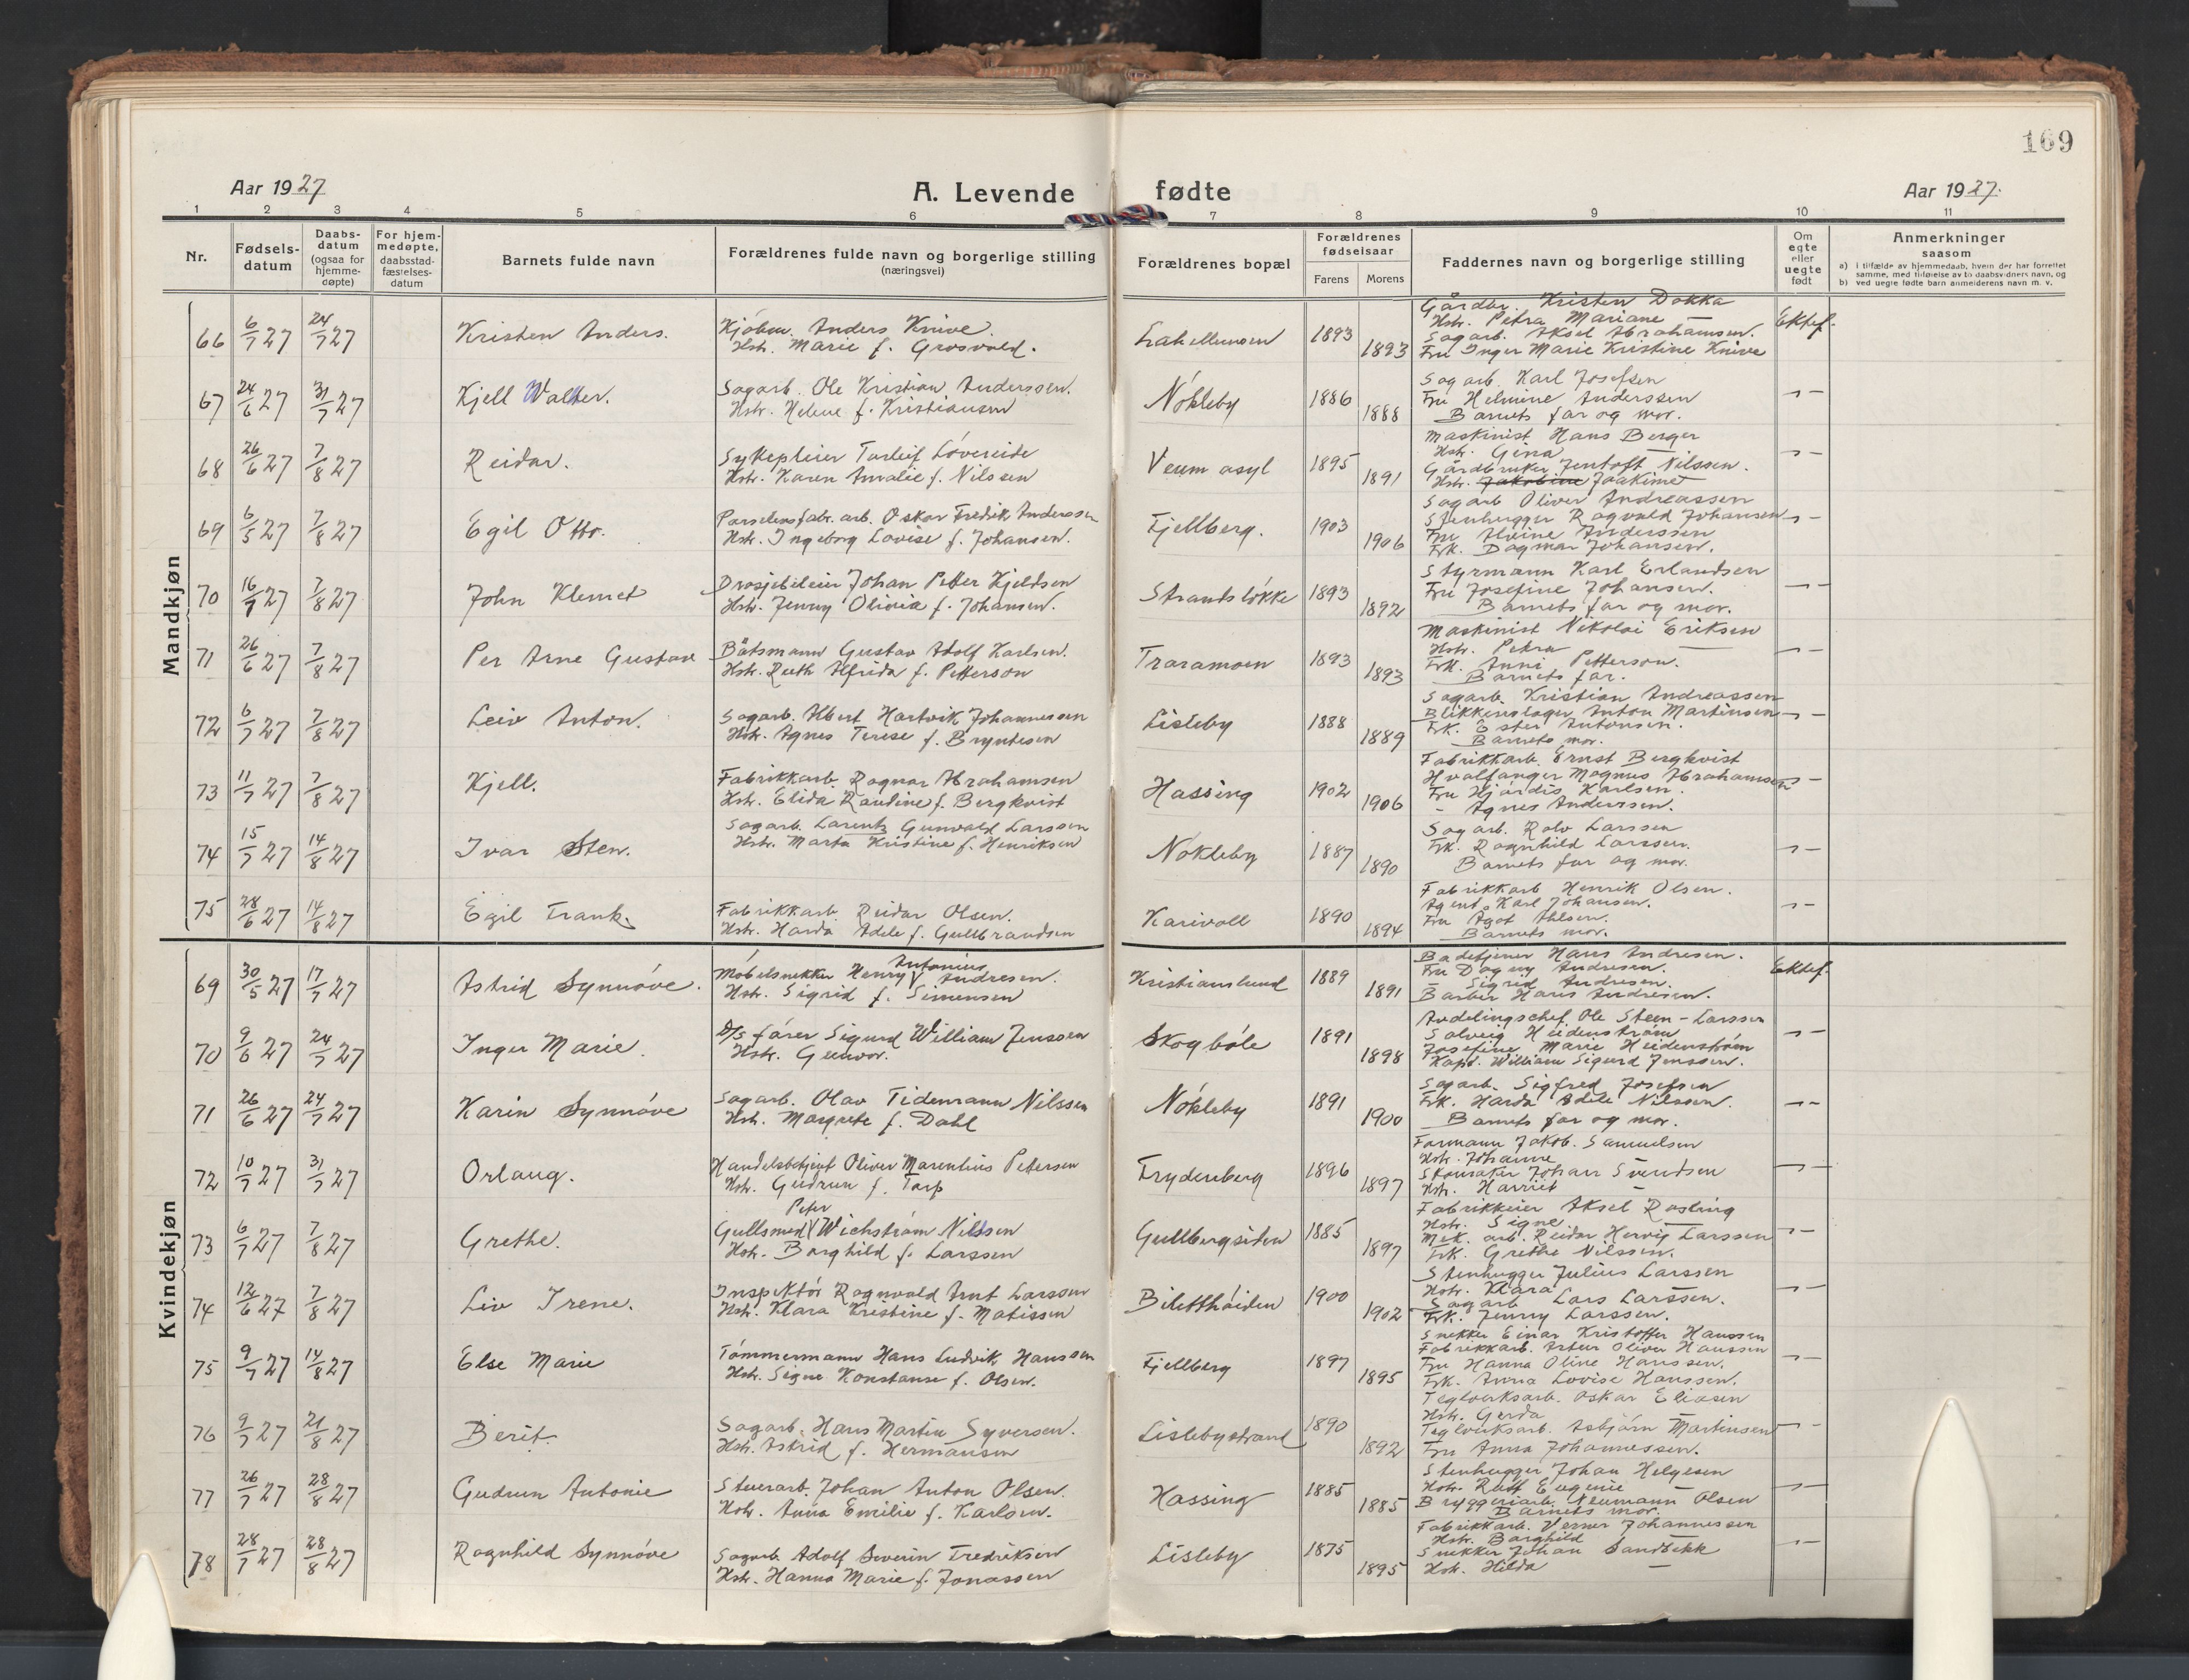 169
Aar 1927
A. Levende fødte
Aar 1927.
1 2 3 4 5 6 7 8 9 10 11
Nr.
Fødsels-
datum
Daabs-
datum
(ogsaa for
hjemme-
døpte)
For hjem-
medøpte,
daabsstad-
fæstelses-
datum
Barnets fulde navn
Forældrenes fulde navn og borgerlige stilling
(næringsvei)
Forældrenes bopæl
Forældrenes
fødselsaar
Farens Morens
Faddernes navn og borgerlige stilling
Om
egte
eller
uegte
født
Anmerkninger
saasom
a) i tilfælde av hjemmedaab, hvem der har forrettet
samme, med tilføielse av to daabsvidners navn, og
b) ved uegte fødte barn anmelderens navn m. v.
Mandkjøn
66 6/7 27 24/7 27 Kristen Anders.
Kjøbm. Anders Knive.
Hstr. Marie f. Grosvold.
1893 1893
Gårdbr. Kristen Dokka
Hstr. Petra Mariane —
Sagarb. Aksel Abrahamsen.
Fru Inger Marie Kristine Knive
Ektef.
67 24/6 27 31/7 27 Kjell Walter.
Sagarb. Ole Kristian Anderssen.
Hstr. Helene f. Kristiansen
Nökleby 1886 1888
Sagarb. Karl Josefsen
Fru Helmine Anderssen
Barnets far og mor.
68 26/6 27 7/8 27 Reidar.
Sykepleier Torleif Lövereide
Hstr. Karen Amalie f. Nilssen
Veum asyl 1895 1891
Maskinist Hans Berger
Hstr. Gina —
Gårdbruker Jentoft Nilssen.
Hstr. Jakobine Joakime
69 6/5 27 7/8 27 Egil Otto.
Porselensfabr. arb. Oskar Fredrik Anderssen
Hstr. Ingeborg Lovise f. Johansen.
Fjellberg. 1903 1906
Sagarb Oliver Andreassen
Stenhugger Ragvald Johansen
Fru Alvine Anderssen
Frk. Dagmar Johansen.
70 16/7 27 7/8 27 John Klemet
Drosjebileier Johan Petter Kjeldsen
Hstr. Jenny Olivia f. Johansen.
Strandsløkke 1893 1892
Styrmann Karl Erlandsen
Fru Josefine Johansen.
Barnets far og mor.
71 26/6 27 7/8 27 Per Arne Gustav
Båtsmann Gustav Adolf Karlsen.
Hstr. Ruth Alfrida f. Petterson
Traramoen 1893 1893
Maskinist Nikolai Eriksen
Hstr. Petra —
Frk. Anni Petterson.
Barnets far.
72 6/7 27 7/8 27 Leiv Anton.
Sagarb. Albert Hartvik Johannessen
Hstr. Agnes Terese f. Bryntesen
Lisleby 1888 1889
Sagarb. Kristian Andreassen
Blikkenslager Anton Martinsen
Frk. Ester Antonsen.
Barnets mor.
73 11/7 27 7/8 27 Kjell.
Fabrikkarb. Ragnar Abrahamsen
Hstr. Elida Raudine f. Bergkvist
Hassing 1902 1906
Fabrikkarb. Ernst Bergkvist
Hvalfanger Magnus Abrahamsen
Fru Hjördis Karlsen.
- Agnes Anderssen.
74 15/7 27 14/8 27 Ivar Sten.
Sagarb. Larentz Gunvald Larssen
Hstr. Marta Kristine f. Henriksen
Nökleby 1887 1890
Sagarb. Rolv Larssen
Frk. Ragnhild Larssen.
Barnets far og mor.
75 28/6 27 14/8 27 Egil Frank
Fabrikkarb. Reidar Olsen.
Hstr. Harda Adele f. Gullbrandsen
Karivoll 1890 1894
Fabrikkarb Henrik Olsen.
Agent Karl Johansen.
Fru Agot Ahlsen.
Barnets mor.
Kvindekjøn
69 30/5 27 17/7 27 Astrid Synnöve.
Antonius
Möbelsnekker Henry V Andresen.
Hstr. Sigrid f. Simensen
Kristianslund 1889 1891
Badetjener Hans Andresen.
Fru Dagny Andresen.
- Sigrid Andresen.
Barber Hans Andresen.
Ektef.
70 9/6 27 24/7 27 Inger Marie.
D/s förer Sigurd William Jenssen
Hstr. Gunvor.
Skogböle 1891 1898
Avdelingschef Ole Steen-Larssen
Solveig Heidenström
Josefine Marie Heidenström
Kapt. William Sigurd Jenssen.
71 26/6 27 24/7 27 Karin Synnöve
Sagarb. Olav Tidemann Nilssen
Hstr. Margrete f. Dahl
Nökleby 1891 1900
Sagarb. Sigfred Josefsen
Frk. Harda Adele Nilssen.
Barnets far og mor.
72 10/7 27 31/7 27 Orlaug.
Handelsbetjent Oliver Marentius Petersen
Hstr. Gudrun f. Torp
Frydenberg 1896 1897
Formann Jakob Samuelsen
Hstr. Johanne
Skomaker Johan Svendsen
Hstr. Harriet —
73 6/7 27 7/8 27 Grethe.
Peter
Gullsmed V Wichstrøm Nilssen
Hstr. Borghild f. Larssen
Gullbergsiden 1885 1897
Fabrikkeier Aksel Rosling
Hstr. Signe —
Mek. arb. Reidar Hervig Larssen
Frk. Grethe Nilssen.
74 12/6 27 7/8 27 Liv Irene.
Inspektör Ragnvald Arnt Larssen
Hstr. Klara Kristine f. Matissen
Biletthöiden 1900 1902
Stenhugger Julius Larssen
Hstr. Klara —
Sagarb Lars Larssen.
Frk. Jenny Larssen.
75 9/7 27 14/8 27 Else Marie
Tömmermann Hans Ludvik Hanssen
Hstr. Signe Konstanse f. Olsen.
Fjellberg 1897 1895
Snekker Einar Kristoffer Hanssen
Fabrikkarb. Artur Oliver Hanssen
Fru Hanna Oline Hanssen.
Frk. Anna Lovise Hanssen.
76 9/7 27 21/8 27 Berit.
Sagarb. Hans Martin Syversen.
Hstr. Astrid f. Hermansen
Lislebystrand 1890 1892
Teglverksarb. Oskar Eliasen
Hstr. Gerda —
Teglverksarb. Asbjörn Martinsen
Fru Anna Johannessen.
77 26/7 27 28/8 27 Gudrun Antonie
Stuerarb. Johan Anton Olsen.
Hstr. Anna Emilie f. Karlsen.
Hassing 1885 1885
Stenhugger Johan Helgesen
Hstr. Rutt Eugenie —
Bryggeriarb. Neumann Olsen
Barnets mor.
78 28/7 27 28/8 27 Ragnhild Synnöve
Sagarb. Adolf Severin Fredriksen
Hstr. Hanna Marie f. Jonassen
Lisleby 1875 1895
Fabrikkarb. Verner Johannessen
Hstr. Borghild —
Snekker Johan Sandbekk
Hstr. Hilda —